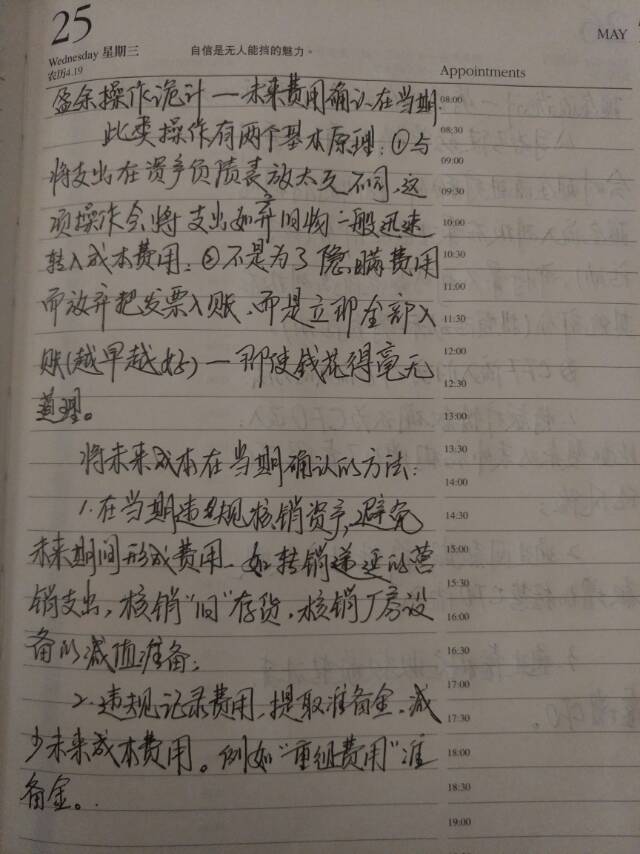 25
MAY
Wednesday 星期三
农历4.19
自信是无人能挡的魅力。
Appointments
盈余操作诡计一未来费用确认在当期
此类操作有两个基本原理:①与
将支出在资产负债表放太久不同,这
项操作会将支出如弃旧物一般迅速
转入成本费用;②不是为了隐瞒费用
而放弃把发票入账,而是立即全部入
账(越早越好)一即使钱花得毫无
道理。
将未来成本在当期确认的方法:
1.在当期违规核销资产,避免
未来期间形成费用。如转销递延的营
销支出,核销“旧”存货,核销厂房设
备的减值准备;
2.违规记录费用,提取准备金,减
少未来成本费用。例如“重组费用”准
备金。
08:00
08:30
09:00
09:30
10:00
10:30
11:00
11:30
12:00
12:30
13:00
13:30
14:00
14:30
15:00
15:30
16:00
16:30
17:00
17:30
18:00
18:30
19:00